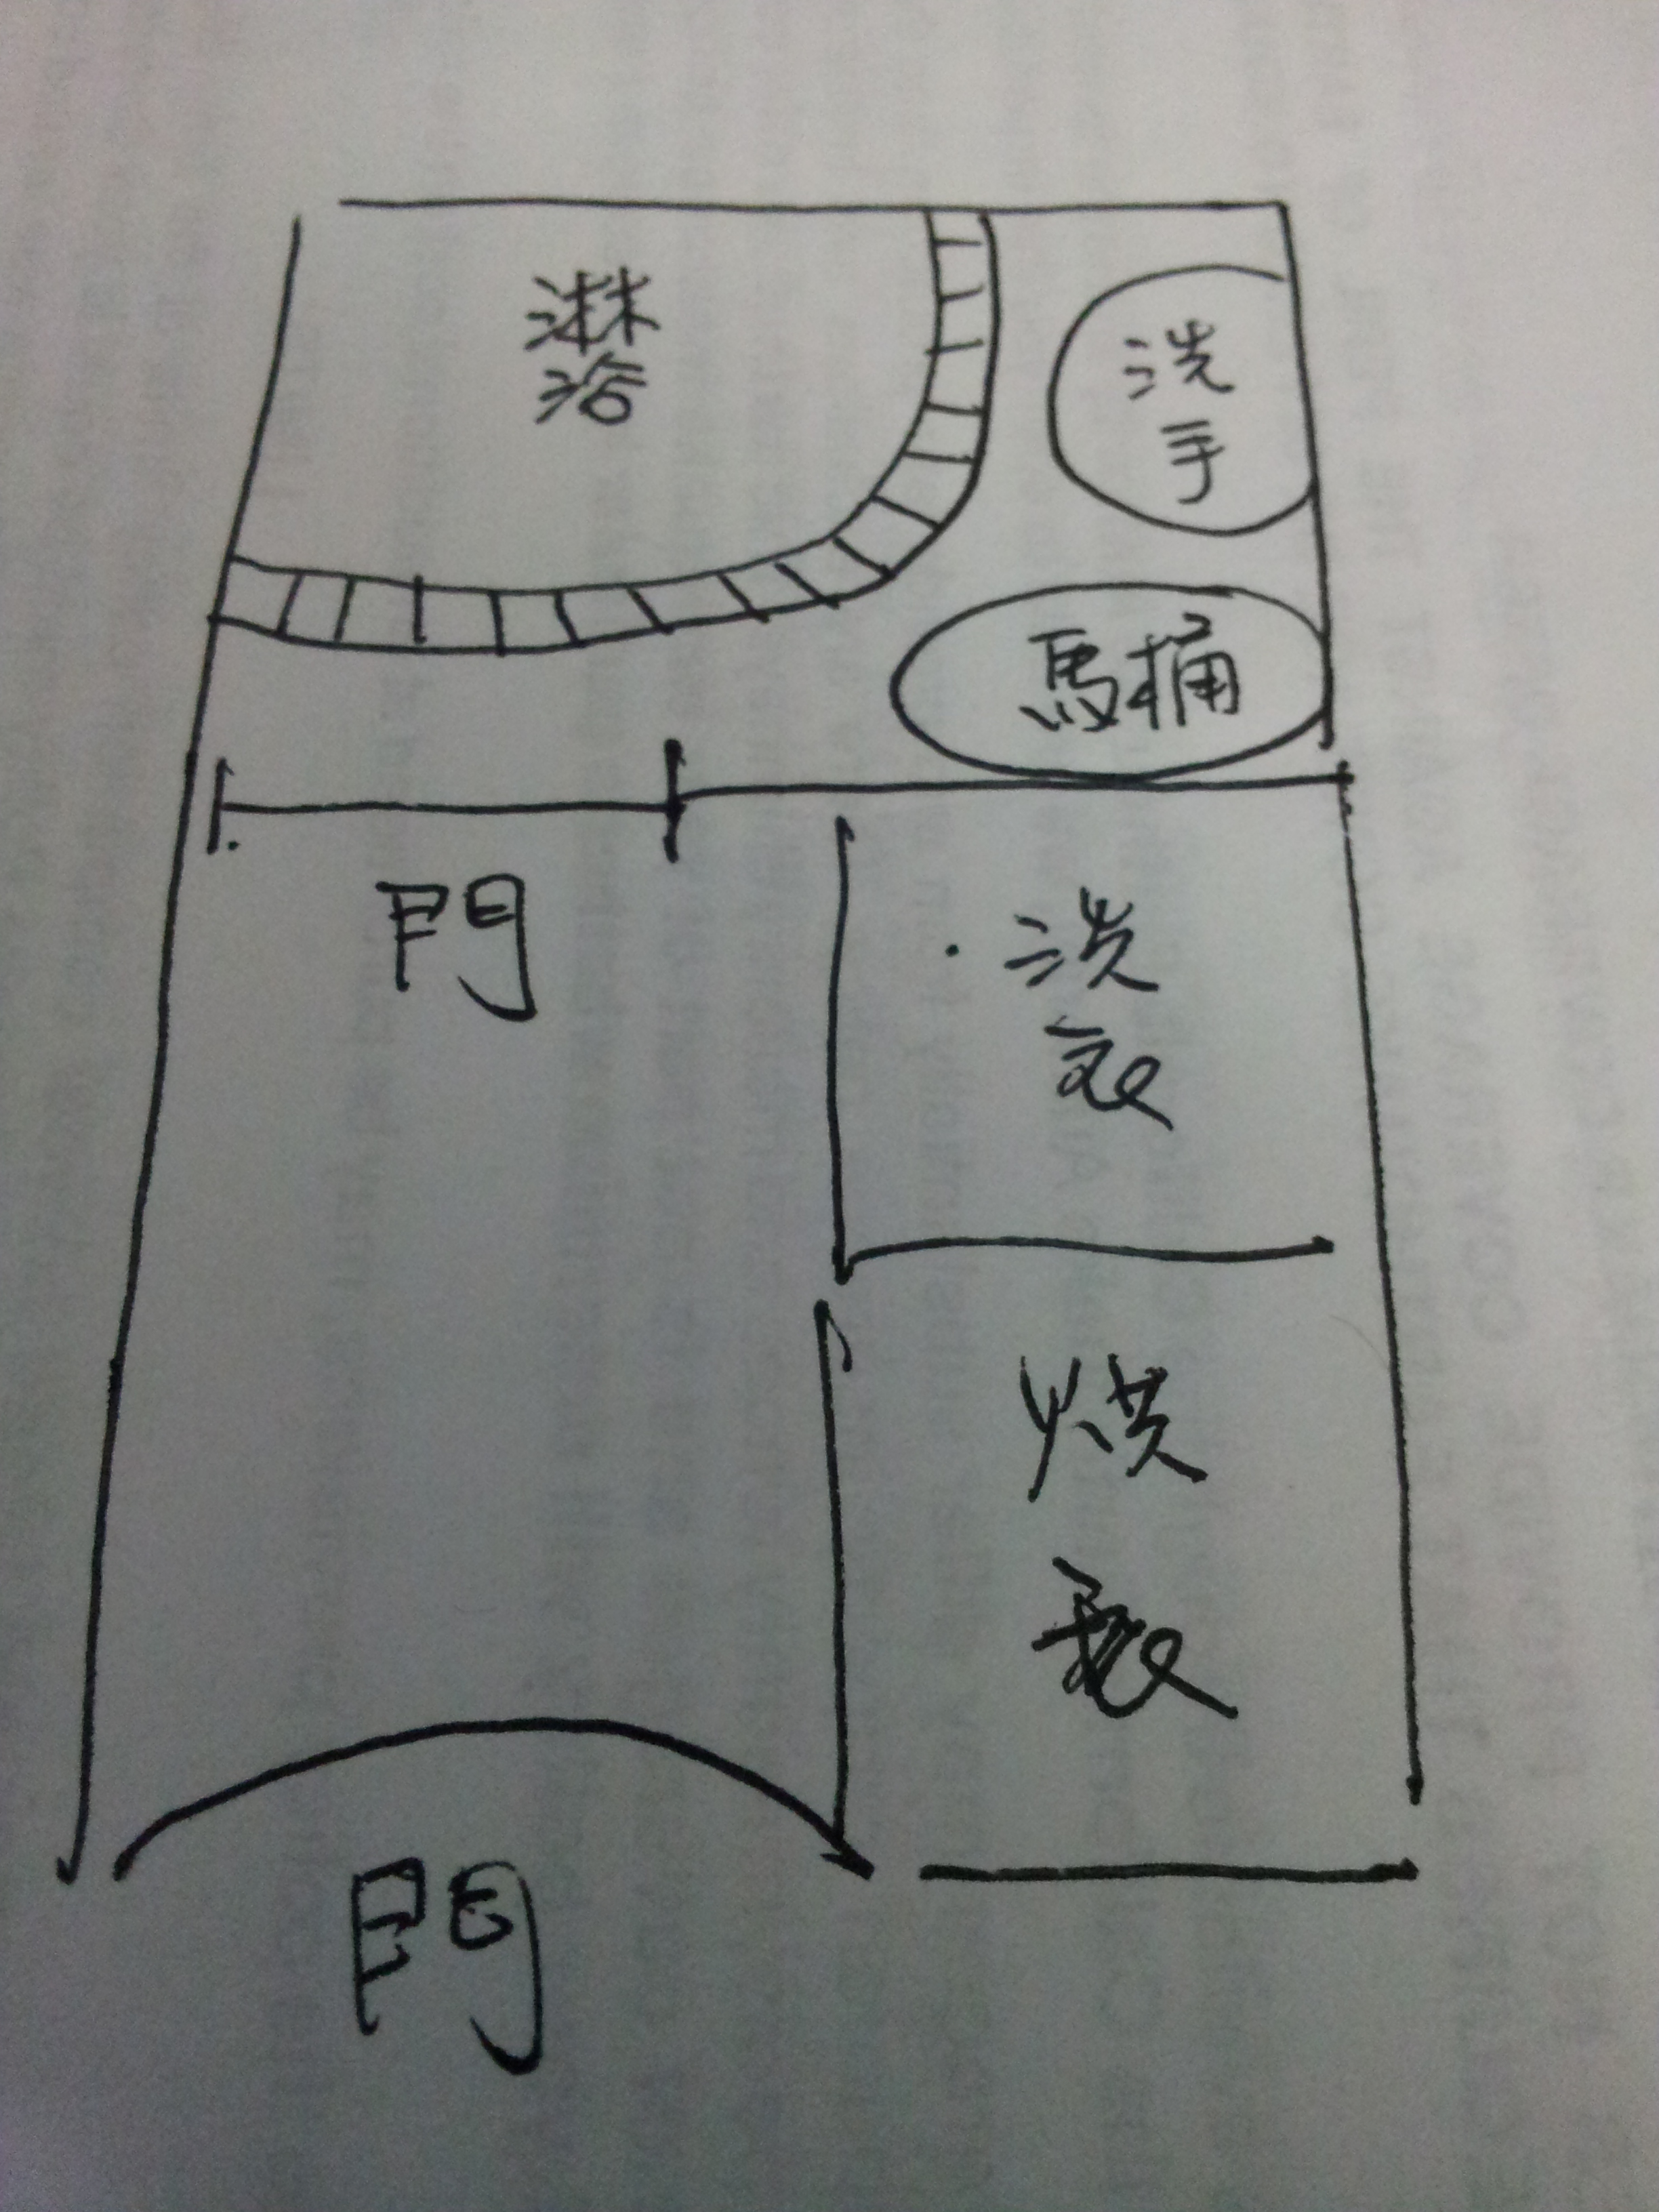 淋
浴
洗
手
馬桶
門
洗
衣
烘
衣
門